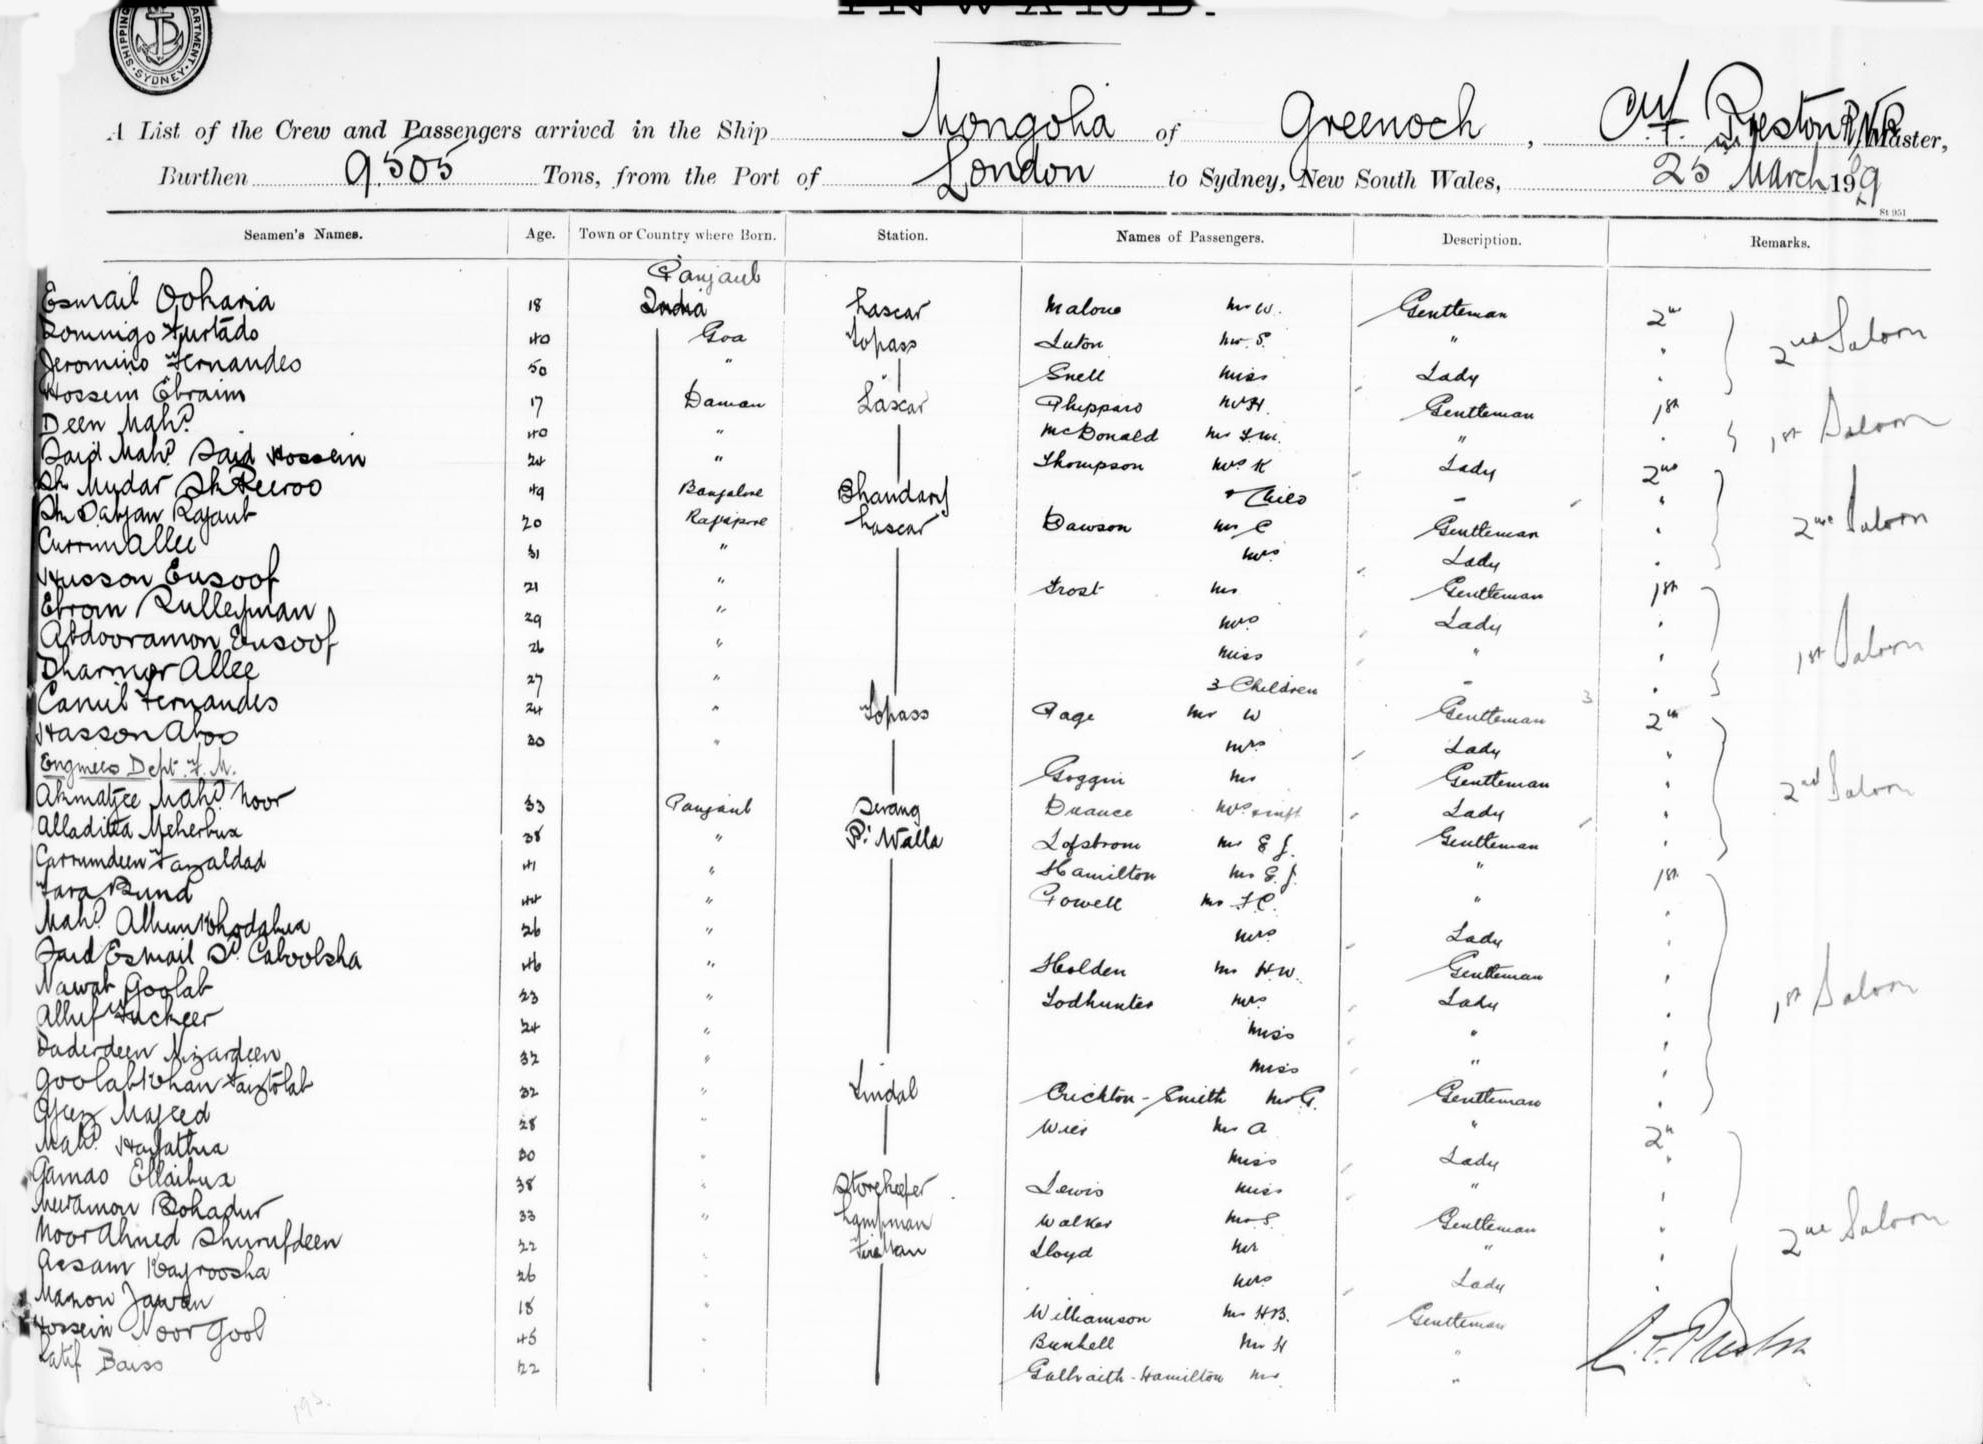 INWARD.
SHIPPING DEPARTMENT SYDNEY
A List of the Crew and Passengers arrived in the Ship Mongolia of Greenock, Preston RNR Master,
Burthen 9,505 Tons, from the Port of London to Sydney, New South Wales, 25 March 19
St 951
Seamen's Names. Age. Town or Country where Born. Station. Names of Passengers. Description. Remarks.
Panjaub
Esmail 18 India Lascar Malone Mr W. Gentleman 2nd
Domnigo Furtado 40 Goa Topass Luton Mr. S. " " 2nd Saloon
Jeronimo Fernandes 50 " Snell Miss Lady "
Hossein Ebraim 17 Daman Lascar Gentleman 1st
Deen Mahd. 40 " McDonald Mr " " 1st Saloon
Said Mahd. Said Hossein 24 " Thompson Mrs K Lady 2nd
Sh Mydar Sh Peeroo 49 Bangalore Bhandary + Child - "
Sh Rajaub 20 Lascar Dawson Mr C Gentleman " 2nd Saloon
Currim Allee 31 " Mrs Lady "
Husson Eusoof 21 " Frost Mr Gentleman 1st
Ebrom Sulleyman 29 " Mrs Lady "
Abdooramon Eusoof 26 " Miss " " 1st Saloon
Allee 27 " 3 Children - "
Camil Fernandes 24 " Topass Page Mr W Gentleman 3 2nd
Hasson Aboo 30 " Mrs Lady "
Engineers Dept. F. M. Goggin Mr Gentleman "
Mahd. Noor 33 Panjaub Serang Mrs Lady " 2nd Saloon
Alladitta Meherbux 38 " P. Walla Lofstrom Mr E J. Gentleman "
Currumdeen Fazaldad 41 " Hamilton Mr E. J. " 1st
44 " Powell Mr F C. " "
Mahd. 26 " Mrs Lady "
Said Esmail Sd. Caboolsha 46 " Holden Mr H W. Gentleman "
Nawab Goolab 23 " Todhunter Mrs Lady " 1st Saloon
Alluf Fuckeer 24 " Miss " "
Nizardeen 32 " Miss " "
Goolab Khan 32 " Tindal Crichton-Smith Mr G. Gentleman "
Majeed 28 " Mr A " 2nd
Mahd. 30 " Miss Lady "
Gamao Ellaibux 38 " Storekeeper Lewis Miss " "
Bohadur 33 " Lampman Walker Mr S. Gentleman " 2nd Saloon
Noor Ahmed Shurufdeen 22 " Fireman Lloyd Mr " "
Assam 26 " Mrs Lady "
Jawan 18 " Williamson Mr H B. Gentleman
Hossein Noor Gool 45 " Bunhell Mr H "
Latif 22 " Galbraith-Hamilton Mr "